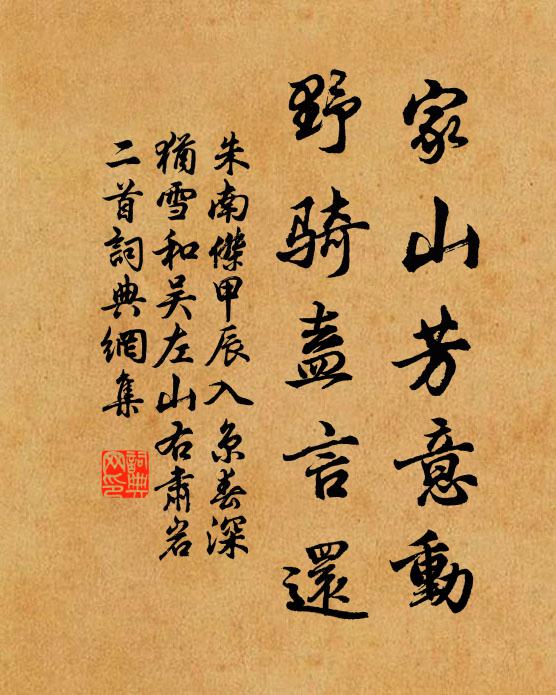 家山芳意動
野騎盍言還
朱南傑甲辰入京春深
猶雪和吳左山右肅岩
二首詞典網集
詞典
网印